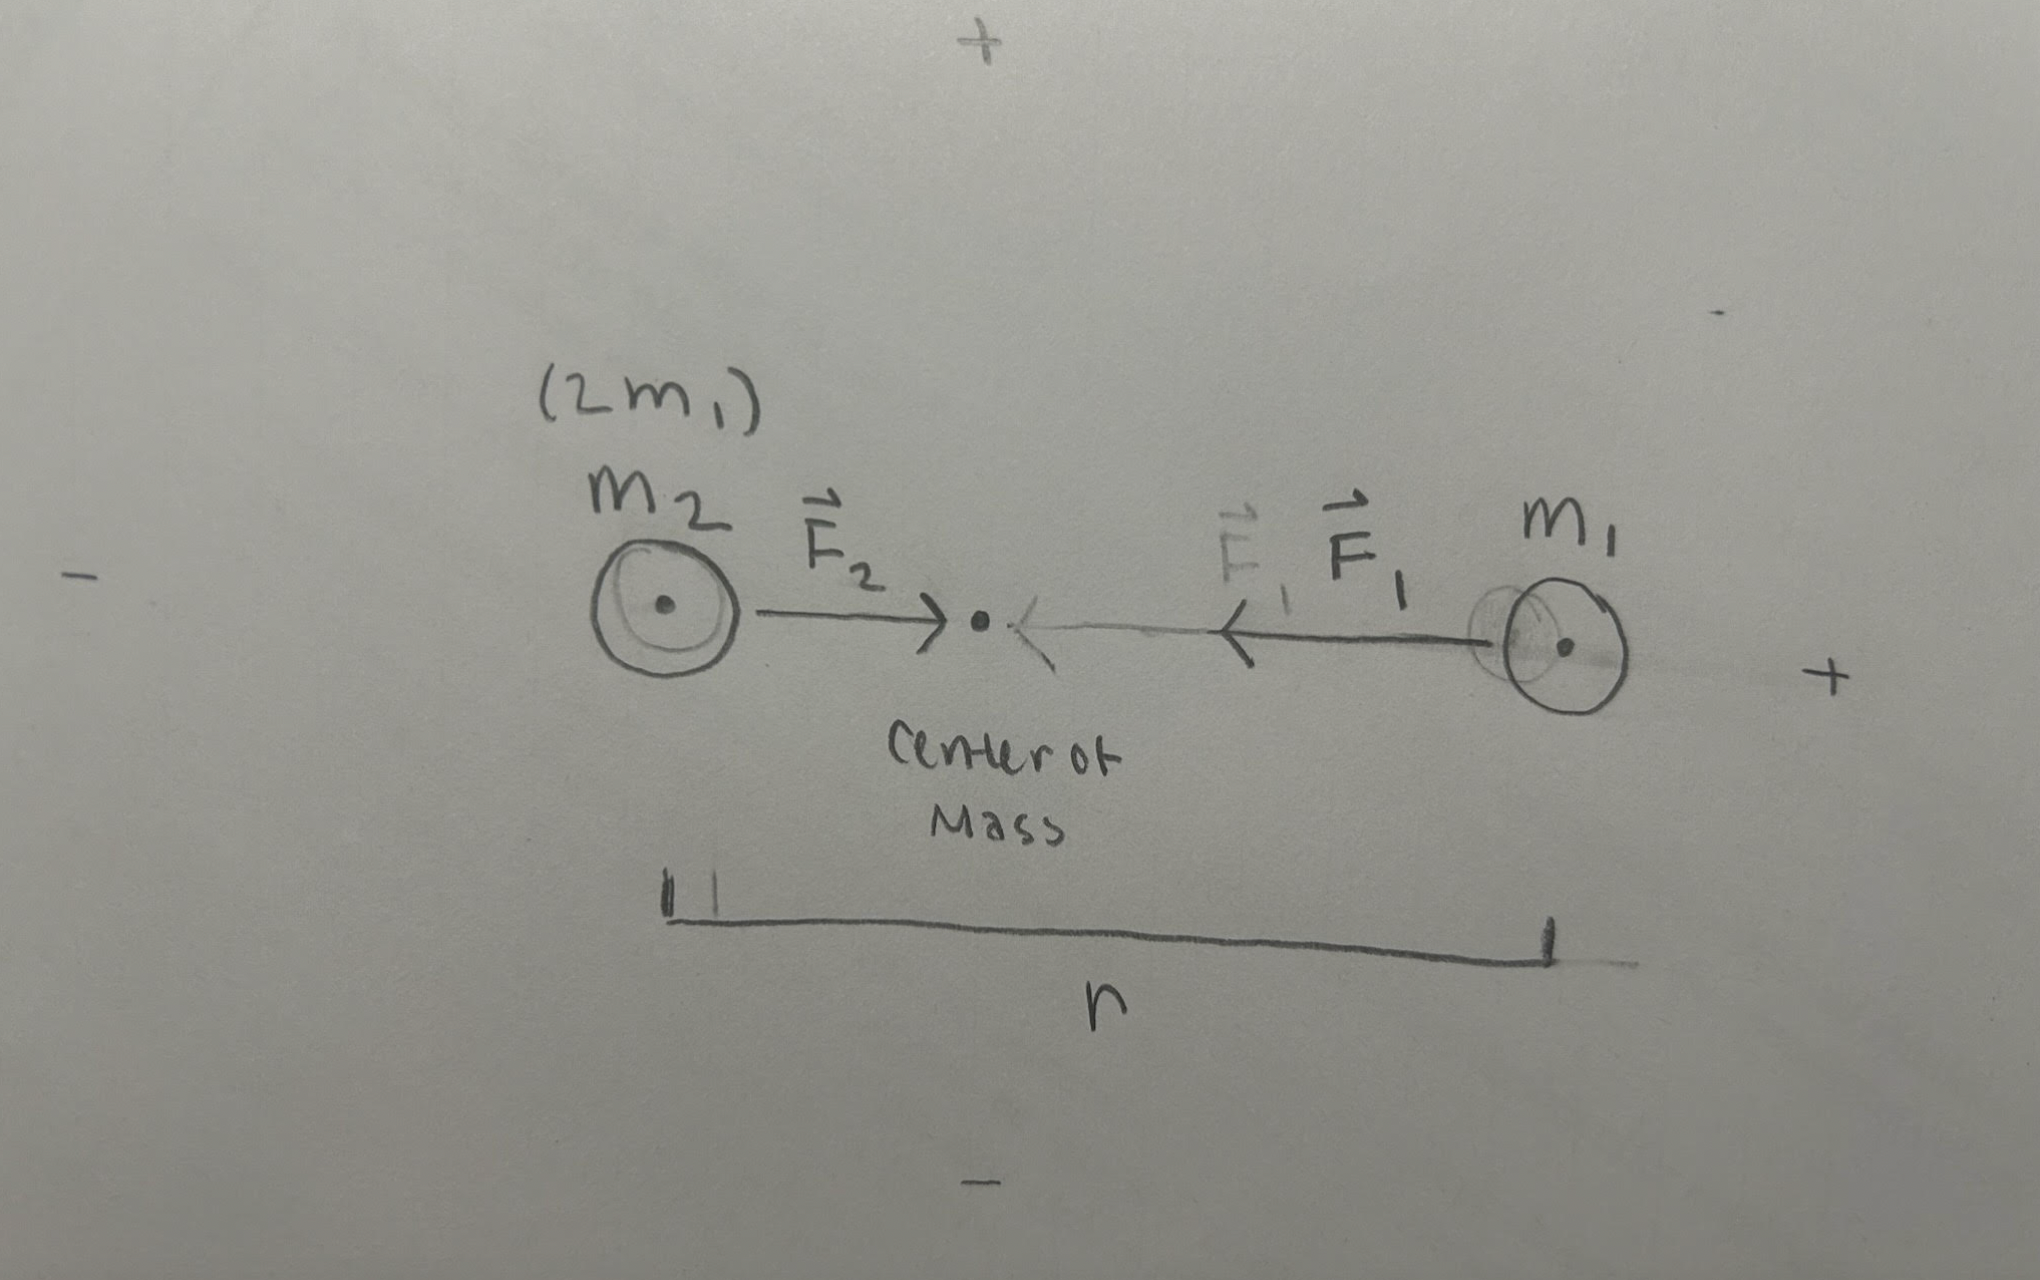 +
(2m₁)
m₂
F⃗₂
F⃗₁
F⃗₁
m₁
−
+
Center of
Mass
r
−